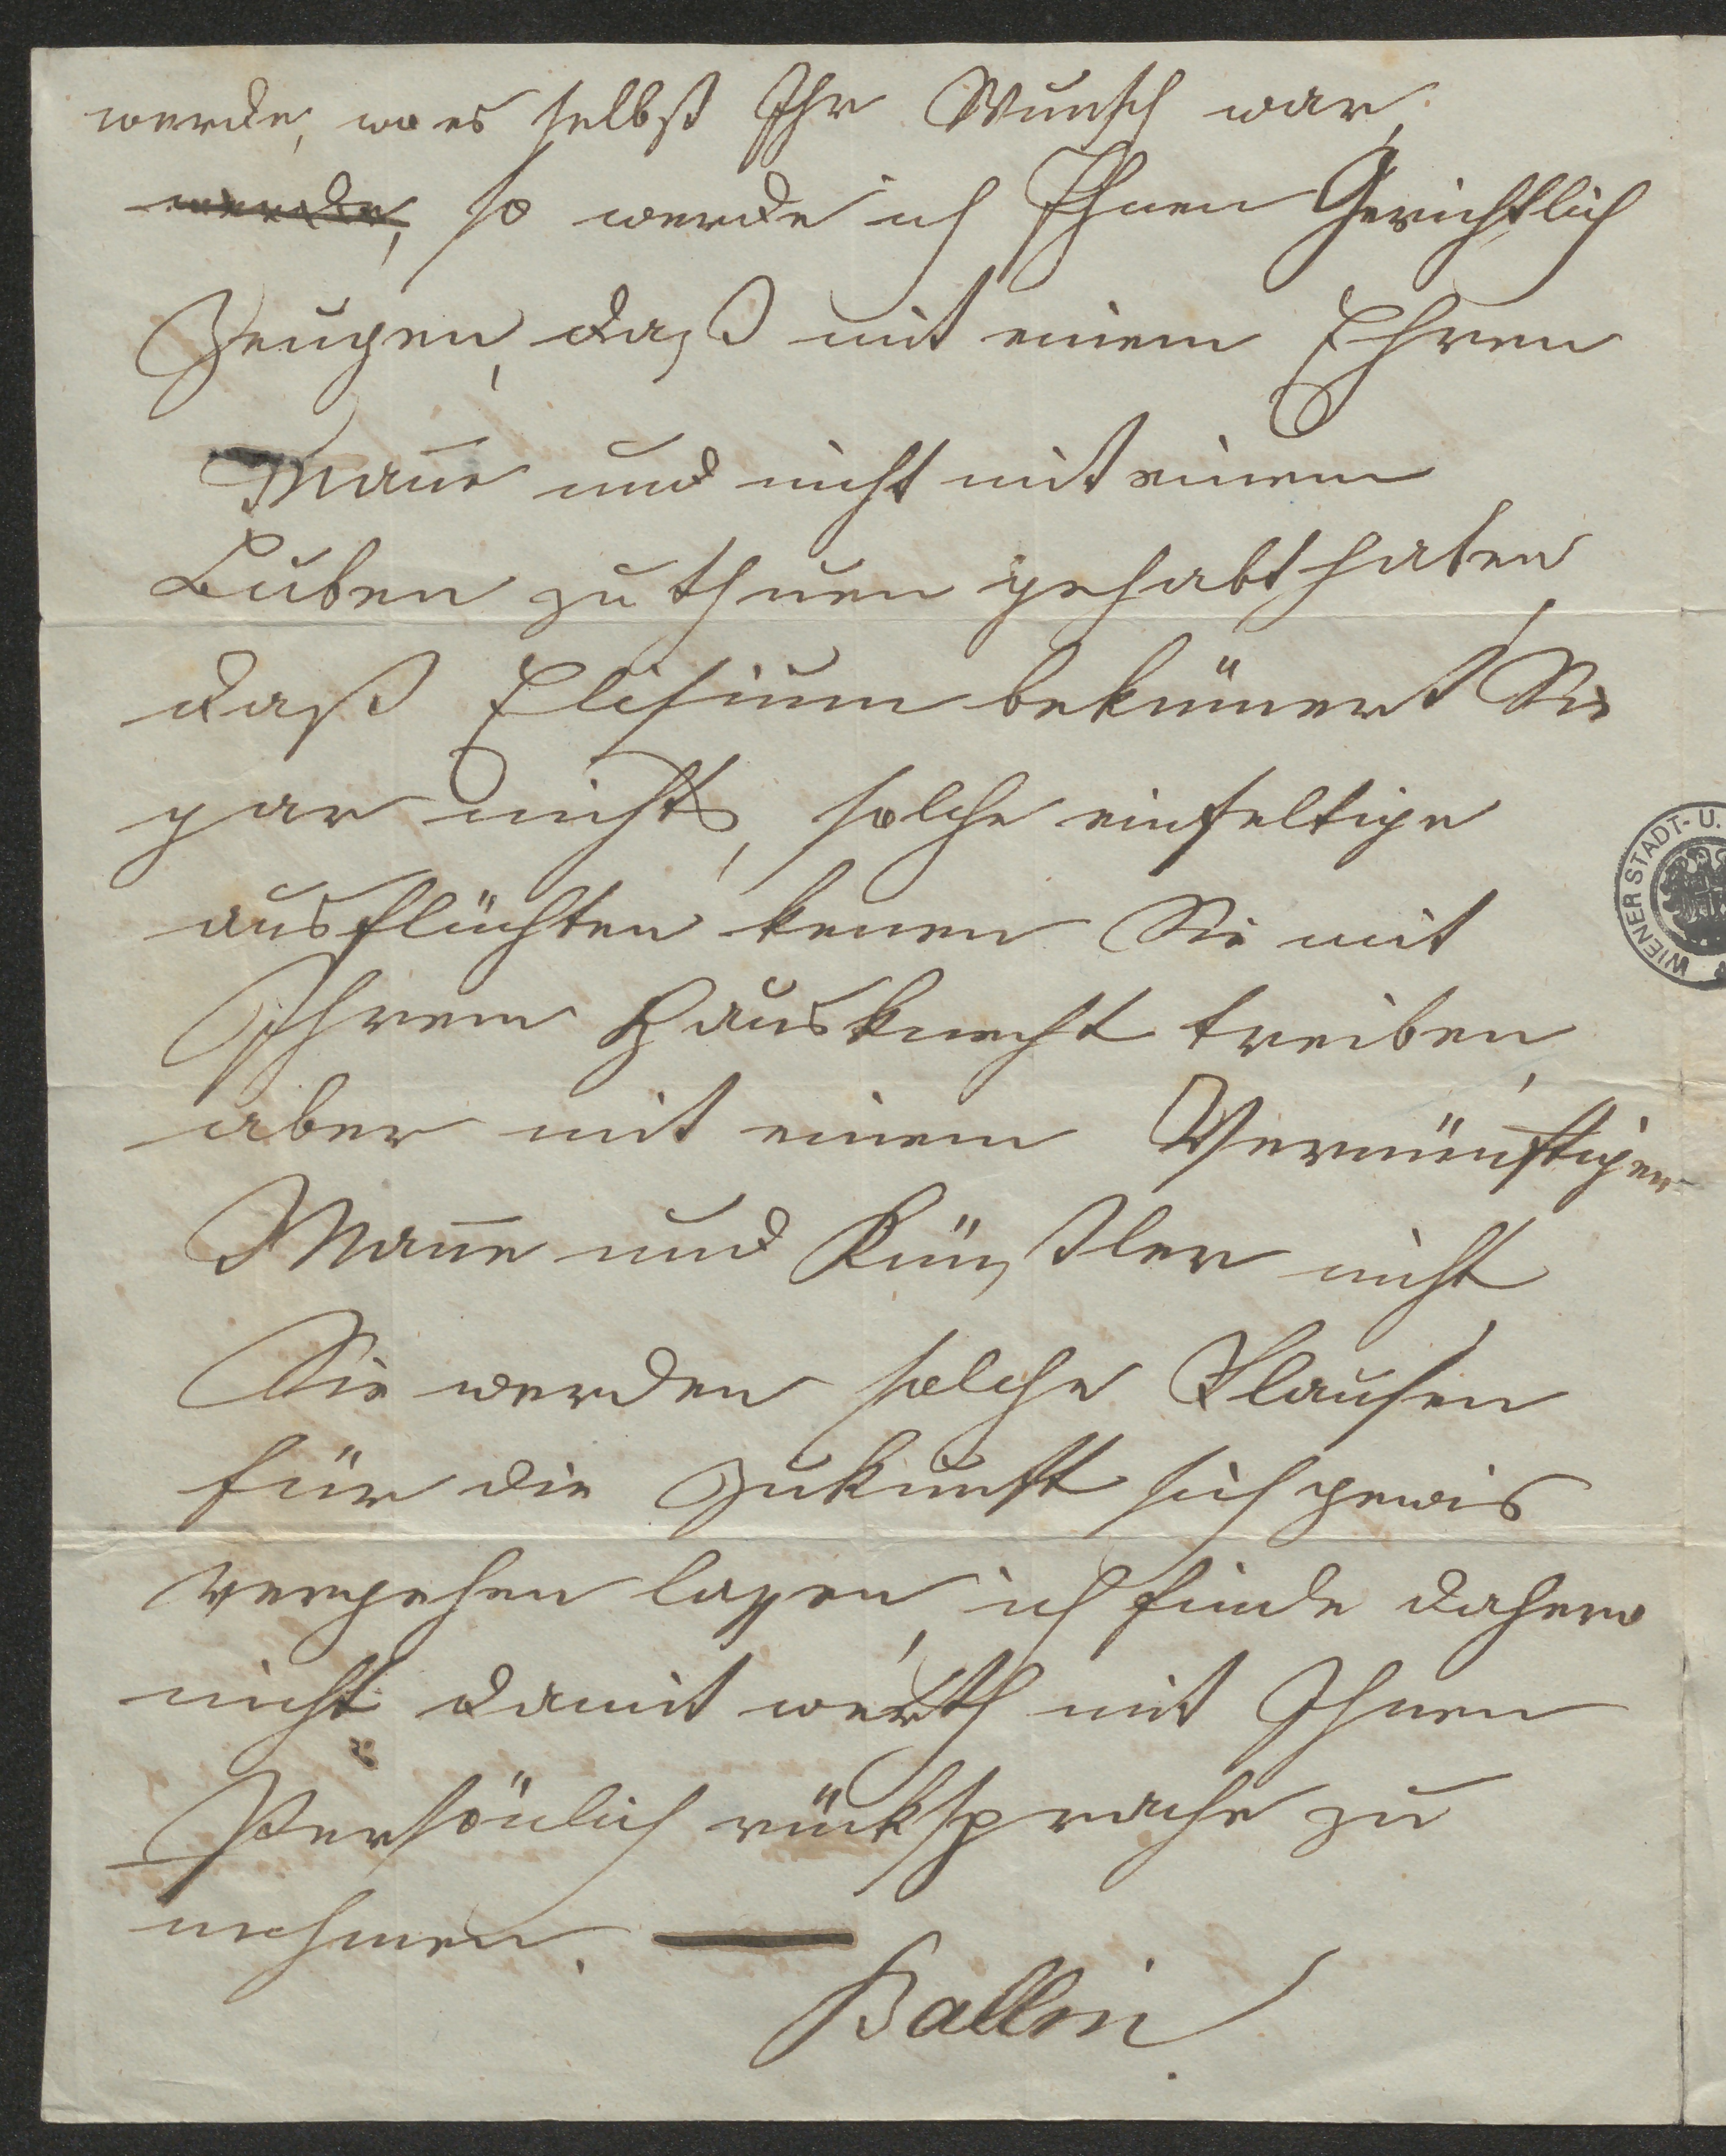 werde, wo es selbst Ihr Wunsch war,
werde, so werde ich Ihnen Gerichtlich
Zeugen, daß mit einem Ehren
Mañe und nicht mit einem
Buben zu thuen gehabt haben,
daß Elisium bekümert Sie
gar nichts, solche einfeltige
ausflüchten kenen Sie mit
Ihrem Hausknecht treiben,
aber mit einem Vernünftigen
Mañe und Künstler nicht,
Sie werden solche Flausen
für die Zukunft sich gewis
vergehen lassen, ich finde dahero
nicht damit werth mit Ihnen
Persönlich rücksprache zu
nehmen. —
Ballin
WIENER STADT- U.